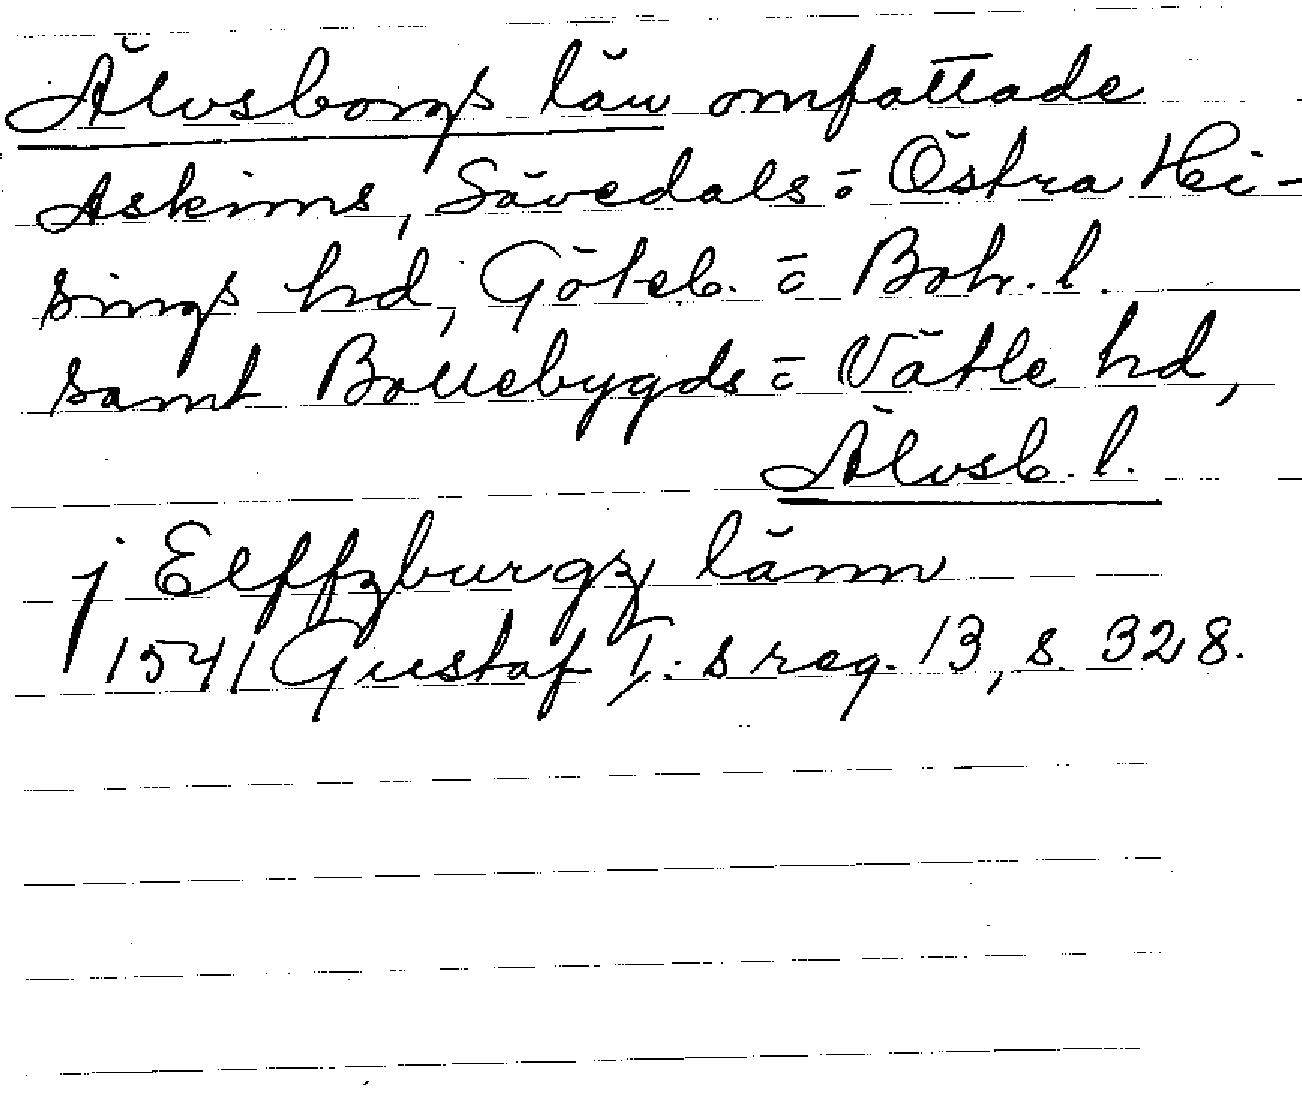 Älvsborgs län omfattade
Askims, Sävedals o Östra Hi-
sings hd, Göteb. o Boh. l.
samt Bollebygds o Vätle hd,
Älvsb. l.
j Elffzburgz länn
1541 Gustaf I:s reg. 13, s. 328.